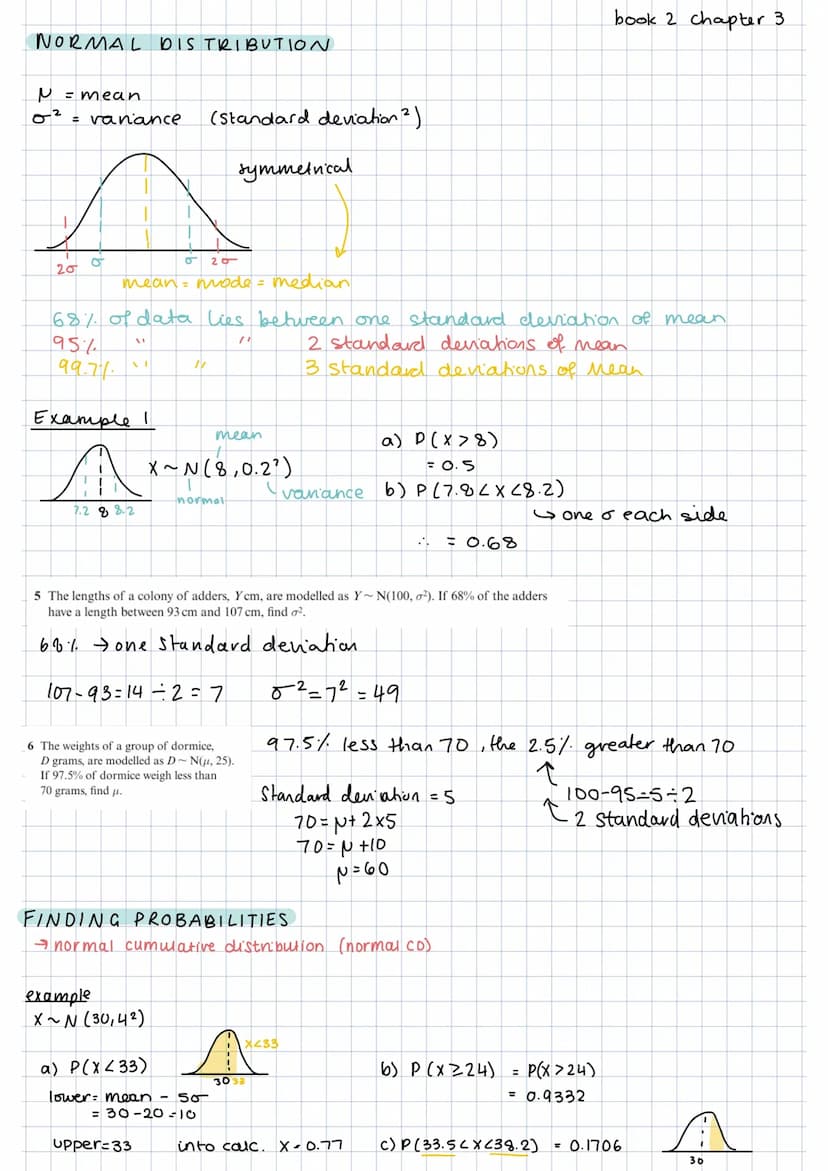 book 2 chapter 3
NORMAL DISTRIBUTION
μ = mean
σ² = variance (standard deviation²)
symmetrical
2σ σ σ 2σ
mean = mode = median
68% of data lies between one standard deviation of mean
95% " " 2 standard deviations of mean
99.7% " " 3 standard deviations of mean
Example 1
mean
X ~ N(8, 0.2²)
normal
variance
7.2 8 8.2
a) P(X > 8)
= 0.5
b) P(7.8 < X < 8.2)
↳ one σ each side
∴ = 0.68
5 The lengths of a colony of adders, Y cm, are modelled as Y ~ N(100, σ²). If 68% of the adders
have a length between 93 cm and 107 cm, find σ².
68% → one standard deviation
107-93=14 ÷ 2 = 7 σ² = 7² = 49
6 The weights of a group of dormice,
D grams, are modelled as D ~ N(μ, 25).
If 97.5% of dormice weigh less than
70 grams, find μ.
97.5% less than 70, the 2.5% greater than 70
100-95=5÷2
2 standard deviations
Standard deviation = 5
70 = μ + 2x5
70 = μ + 10
μ = 60
FINDING PROBABILITIES
→ normal cumulative distribution (normal CD)
example
X ~ N (30, 4²)
a) P(X < 33)
X<33
30 33
lower = mean - 5σ
= 30 - 20 = 10
upper = 33 into calc. X = 0.77
b) P(X ≥ 24) = P(X > 24)
= 0.9332
c) P(33.5 < X < 38.2) = 0.1706
30